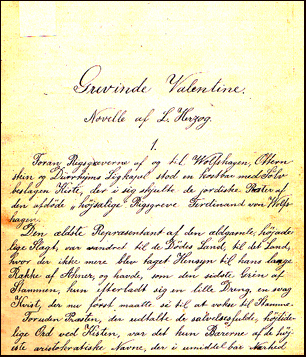 Grevinde Valentine.
Novelle af L. Herzog.
1.
Foran Rigsgreverne af og til Wolfshagen, Ostern
skin og Dürrhjems Ligkapel stod en kostbar med Sølv
beslagen Kiste, der i sig skjulte de jordiske Rester af
den afdøde, højædlige Rigsgreve Ferdinand von Wolfs-
hagen.
Den ældste Repræsentant af den ældgamle, højade-
lige Slægt, var vandret til de Dødes Land, til det Land,
hvor der ikke mere blev taget Hensyn til hans lange
Række af Ahner, og havde, som den sidste Gren af
Stammen, kun efterladt sig en lille Dreng, en svag
Kvist, der nu først maatte se til at vokse til Stamme.
Foruden Præsten, der udtalte de salvelsesfulde, højtide-
lige Ord ved Kisten, var det kun Bærerne af de høj-
este aristokratiske Navne, der i umiddelbar Nærhed